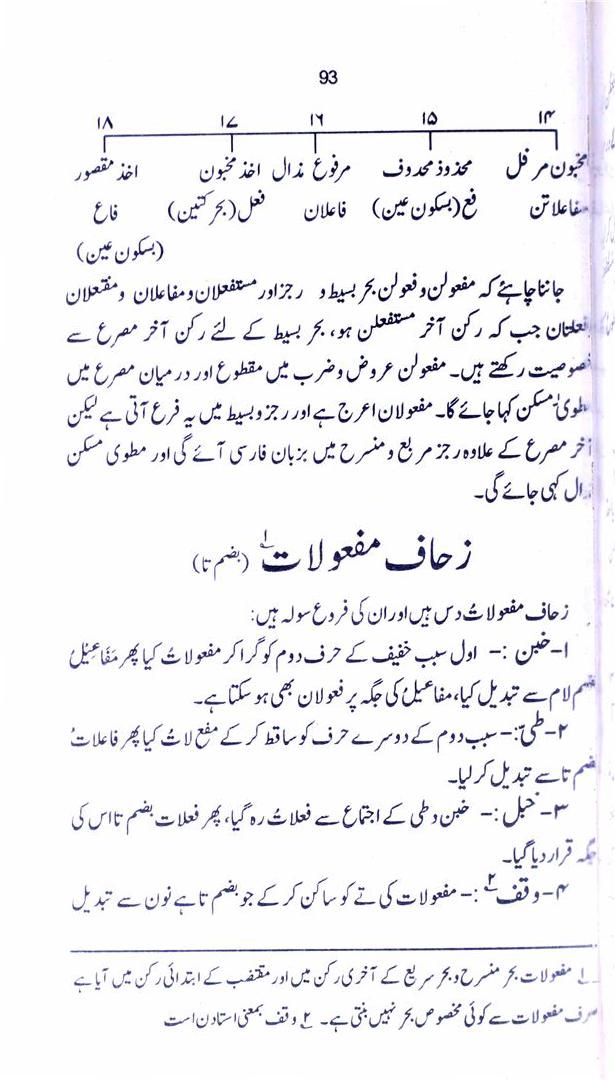 93
۱۴ ۱۵ ۱۶ ۱۷ ۱۸
مخبون مرفل محذوذ محدوف مرفوع مذال اخذ مخبون اخذ مقصور
مفاعلاتن فع (بسکون عین) فاعلان فعل (بحرکتین) فاع
(بسکون عین)
جاننا چاہئے کہ مفعولن و فعولن بحر بسیط و رجز اور مستفعلان و مفاعلان و مفتعلان
فعلتان جب کہ رکن آخر مستفعلن ہو، بحر بسیط کے لئے رکن آخر مصرع سے
خصوصیت رکھتے ہیں۔ مفعولن عروض و ضرب میں مقطوع اور درمیان مصرع میں
مطوی مسکن کہا جائے گا۔ مفعولان اعرج ہے اور رجز و بسیط میں یہ فرع آتی ہے لیکن
آخر مصرع کے علاوہ رجز مربع و منسرح میں بزبان فارسی آئے گی اور مطوی مسکن
مذال کہی جائے گی۔
زحاف مفعولات ۱؎ (بضم تا)
زحاف مفعولاتُ دس ہیں اور ان کی فروع سولہ ہیں:
۱- خبن :- اول سبب خفیف کے حرف دوم کو گرا کر مفعولاتُ کیا پھر مَفَاعِیْلُ
بضم لام سے تبدیل کیا، مفاعیلُ کی جگہ پر فعولان بھی ہو سکتا ہے۔
۲- طیّ:- سبب دوم کے دوسرے حرف کو ساقط کر کے مفع لاتُ کیا پھر فاعلاتُ
بضم تا سے تبدیل کر لیا۔
۳- خبل :- خبن و طی کے اجتماع سے فعلاتُ رہ گیا، پھر فعلات بضم تا اس کی
جگہ قرار دیا گیا۔
۴- وقف ۲؎ :- مفعولات کی تے کو ساکن کر کے جو بضم تا ہے نون سے تبدیل
۱؎ مفعولات بحر منسرح و بحر سریع کے آخری رکن میں اور مقتضب کے ابتدائی رکن میں آیا ہے
صرف مفعولات سے کوئی مخصوص بحر نہیں بنتی ہے۔ ۲؎ وقف بمعنی استادن است